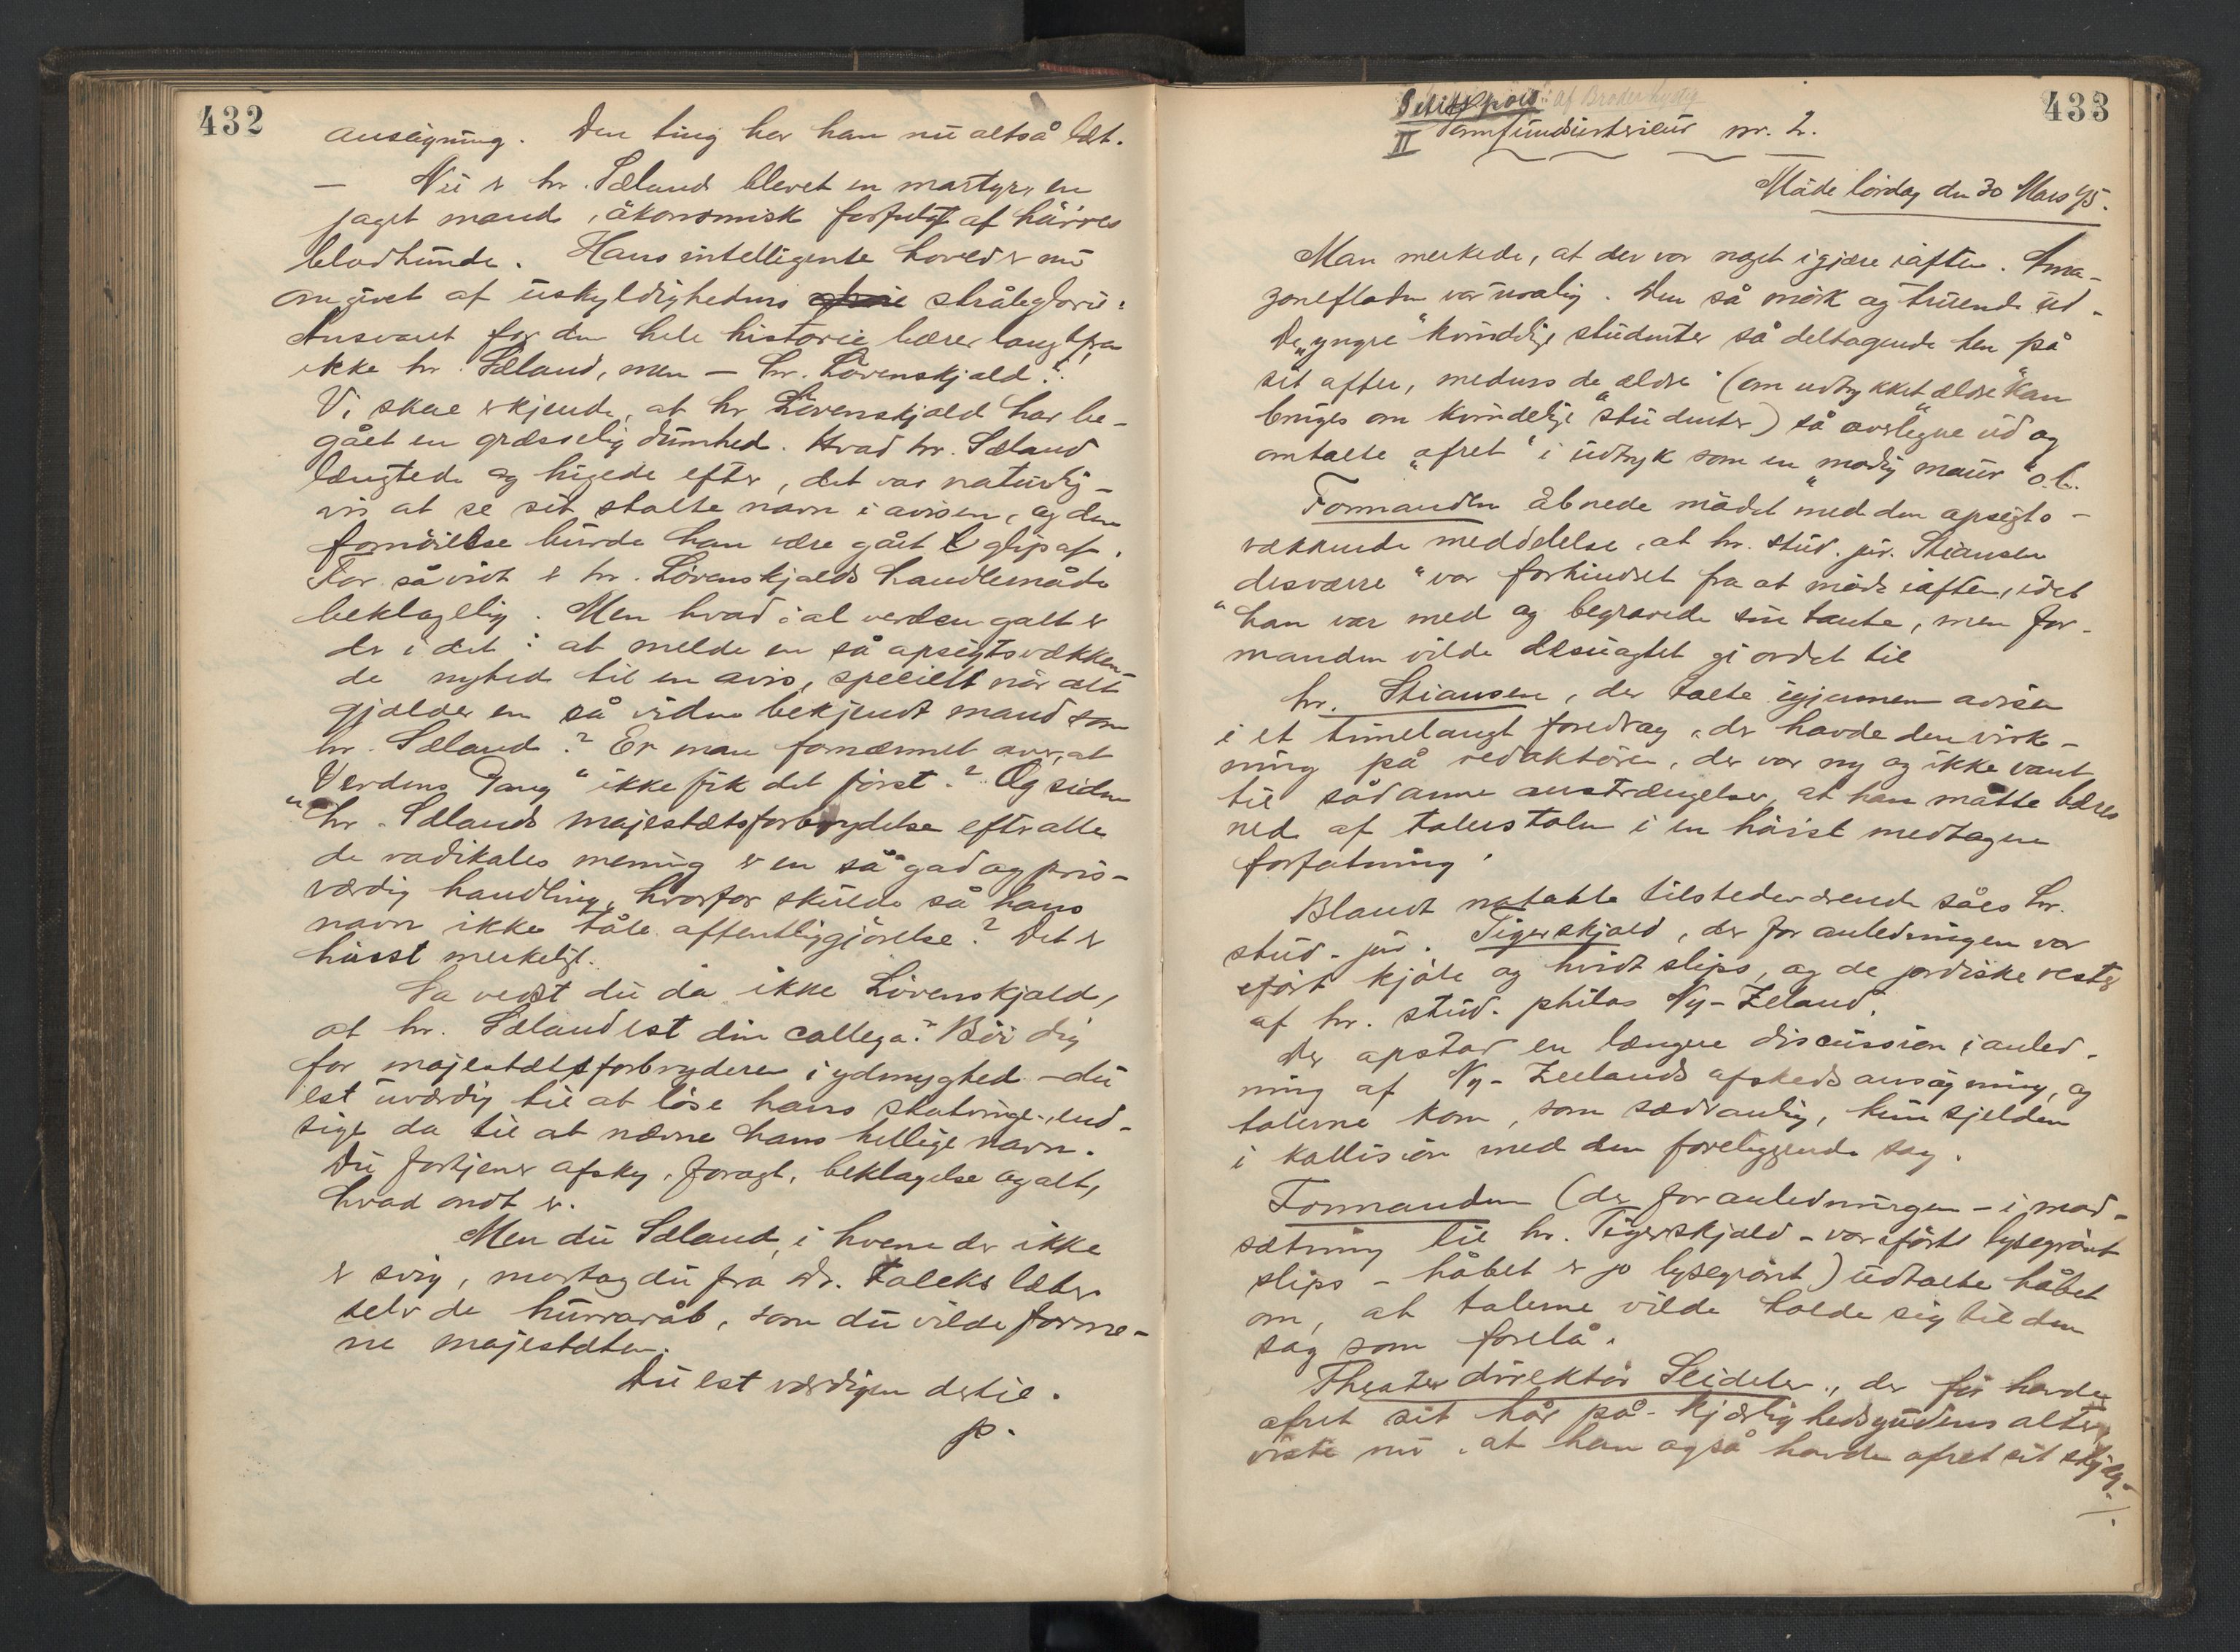 432
ansøgning. Den ting har han nu altså lært.
— Nu er hr. Sæland blevet en martyr, en
jaget mand, økonomisk forfulgt af
blodhunde. Hans intelligente hoved er nu
omgivet af uskyldighedens stråleglorie.
Ansvaret for den hele historie bærer langtfra
ikke hr. Sæland, men — hr. Lövenskjold!
Vi skal erkjende, at hr Lövenskjold har be-
gået en græsselig dumhed. Hvad hr. Sæland
længtede og higede efter, det var naturlig-
vis at se sit stolte navn i avisen, og den
fornöielse burde han være gået glip af.
For såvidt er hr. Lövenskjolds handlemåde
beklagelig. Men hvad i al verden galt er
der i det: at melde en så opsigtsvækken-
de nyhed til en avis, specielt når det
gjælder en så viden bekjendt mand som
hr. Sæland? Er man fornærmet over, at
"Verdens Gang" ikke fik det först? Og siden
hr. Sælands majestætsforbrydelse efter alle
de radikales mening er en så god og pris-
værdig handling, hvorfor skulde så hans
navn ikke tåle offentliggjörelse? Det er
höist merkeligt.
Sa vedst du da ikke Lövenskjold,
at hr. Sæland est din collega? Böi dig
for majestætsforbryderen i ydmyghed — du
est uværdig til at löse hans skotvinge, end-
sige da til at nævne hans hellige navn.
Du fortjener afsky, foragt, beklagelse og alt,
hvad ondt er.
Men du Sæland, i hvem der ikke
er svig, modtag du fra dr. Faleks læber
selv de hurraråb, som du vilde forme-
ne majestæten.
Du est værdigen dertil.
p.
433
af Broder Lystig
II Samfundsinterieur nr. 2.
Möde lördag den 30 Mars 95.
Man merkede, at der var noget igjære iaften. Ama-
zonefloden var urolig. Den så mörk og truende ud.
De "yngre" kvindelige studenter så deltagende hen på
sit offer, medens de ældre (om udtrykket "ældre" kan
bruges om kvindelige studenter) så overlegne ud og
omtalte "ofret" i udtryk som en "modig maur" o. l.
Formanden åbnede mödet med den opsigts-
vækkende meddelelse, at hr. stud. jur. Stiansen
desværre var forhindret fra at möde iaften, idet
"han var med og begravede sin tante", men for-
manden vilde desuagtet gi ordet til
hr. Stiansen, der talte igjennem avisen
i et timelangt foredrag, der havde den virk-
ning på redaktören, der var ny og ikke vant
til sådanne anstrængelser, at han måtte bæres
ned af talerstolen i en höist medtagen
forfatning.
Blandt notable tilstedeværende såes hr.
stud. jur. Tigerskjold, der for anledningen var
efört kjole og hvidt slips, og de jordiske rester
af hr. stud. philos Ny-Zeland.
Der opstod en længere discussion i anled-
ning af Ny-Zeelands afskedsansögning, og
talerne kom, som sædvanlig, kun sjelden
i kollision med den foreliggende sag.
Formanden (der for anledningen — i mod-
sætning til hr. Tigerskjold — var ifört lysegrönt
slips — håbet er jo lysegrönt) udtalte håbet
om, at talerne vilde holde sig til den
sag som forelå.
Theaterdirektör Seideler, der för havde
ofret sit hår på kjærlighedsgudens alter,
viste nu, at han også havde ofret sit skjæg.